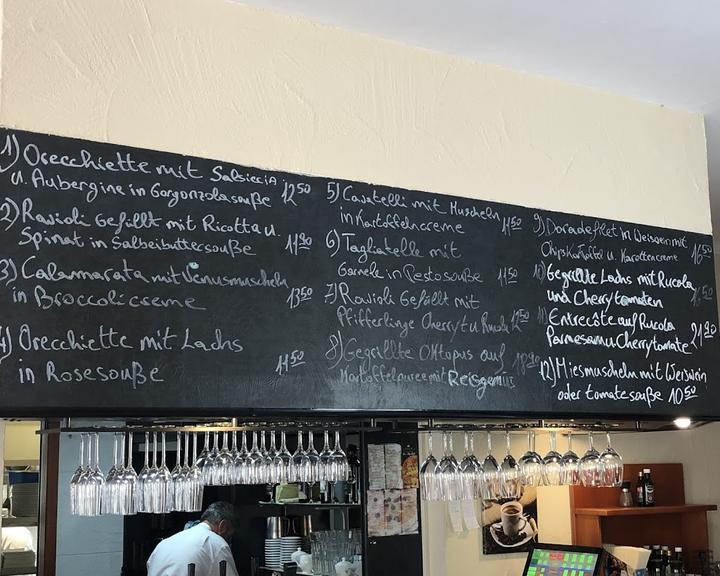 1) Orecchiette mit Salsiccia
u. Aubergine in Gorgonzolasouße 12 50
2) Ravioli Gefüllt mit Ricotta u.
Spinat in Salbeibuttersouße 11 90
3) Calammarata mit Venusmuscheln
in Broccolicreme 13 50
4) Orecchiette mit Lachs
in Rosesouße 11 50
5) Cavatelli mit Muscheln
in Kartoffelncreme 11 50
6) Tagliatelle mit
Garnele in Pestosouße 11 50
7) Ravioli Gefüllt mit
Pfifferlinge Cherryt u. Rucola 12 50
8) Gegrillte Oktopus auf
Kartoffelpuree mit Reisgemüs
9) Doradefilet in Weiswein mit
Chips Kartoffel u. Karottencreme 16 50
10) Gegrillte Lachs mit Rucola
und Cherrytomaten
11) Entrecôte auf Rucola
Parmesan u Cherrytomate 21 90
12) Miesmuscheln mit Weiswein
oder tomatesouße 10 50